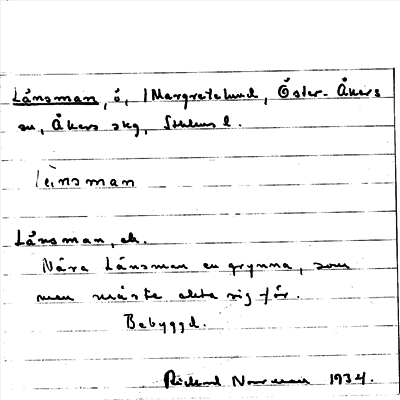 Länsman, ö, Margretelund, Öster-Åkers
sn, Åkers skg, Sthlms l.
länsman
Länsman, ök.
Nära Länsman en grynna, som
men måste akta sig för.
Bebyggd.
Rickard 1934.